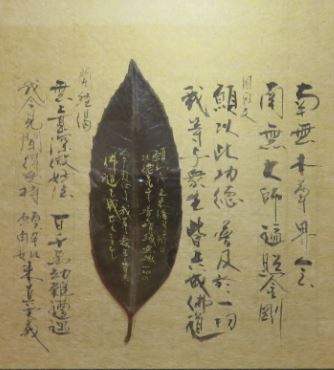 南無本尊界会
南無大師遍照金剛
回向文
願以此功徳普及於一切
我等与衆生皆共成佛道
開経偈
無上甚深微妙法 百千万劫難遭遇
我今見聞得受持 願解如来真実義